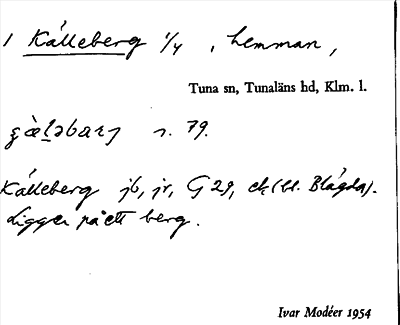 1 Kålleberg 1/4, hemman,
Tuna sn, Tunaläns hd, Klm. l.
s. 79.
Kålleberg jb, jr, G 29, ek (bl. Blågda).
Ligger på ett berg.
Ivar Modéer 1954